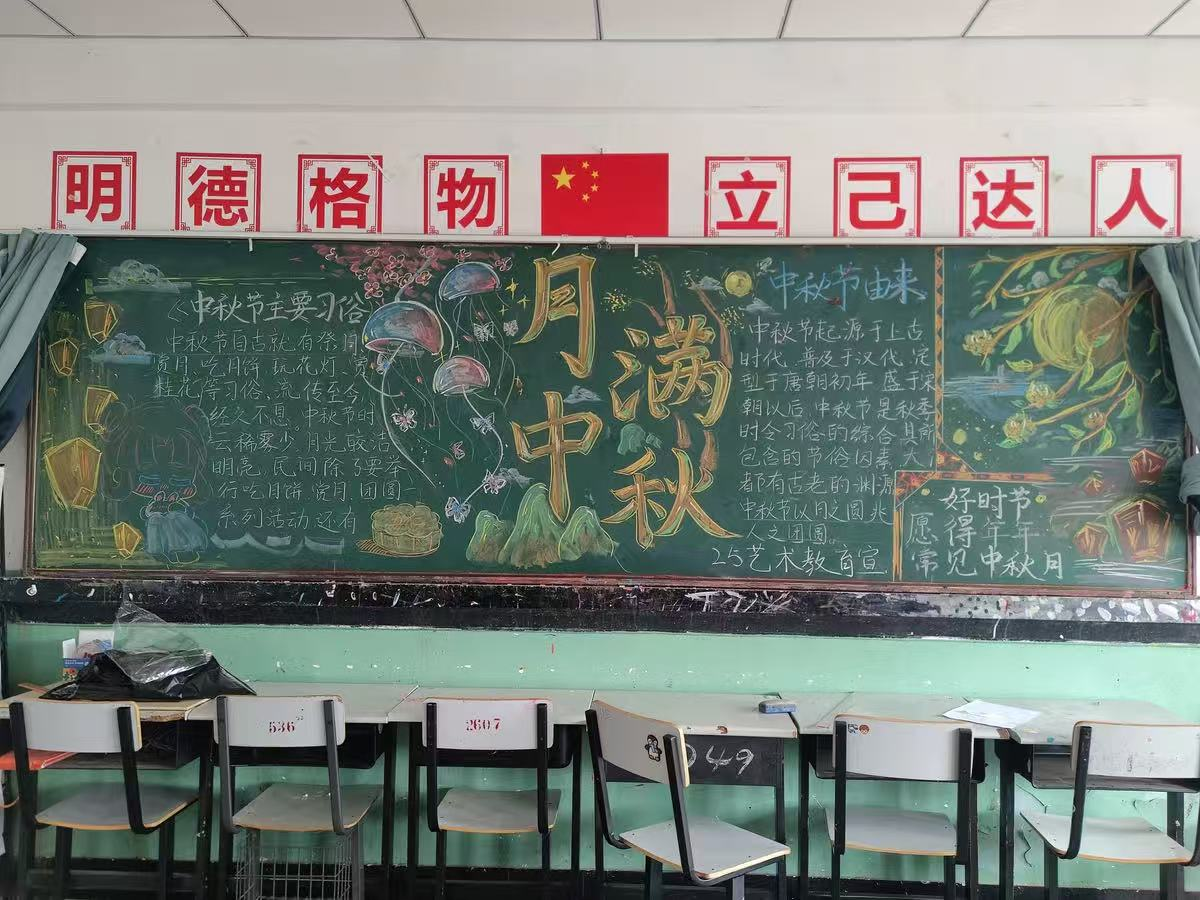 明德格物 立己达人
中秋节主要习俗
中秋节自古就有祭月
赏月、吃月饼、玩花灯、赏
桂花等习俗、流传至今,
经久不息。中秋节时
云稀雾少、月光皎洁
明亮,民间除了要举
行吃月饼、赏月、团圆一
系列活动,还有
月满中秋
中秋节由来
中秋节起源于上古
时代,普及于汉代,定
型于唐朝初年,盛于宋
朝以后,中秋节是秋季
时令习俗的综合,其所
包含的节俗因素,大
都有古老的渊源
中秋节以月之圆兆
人之团圆。
25艺术教育宣
好时节
愿得年年
常见中秋月
536
2607
049